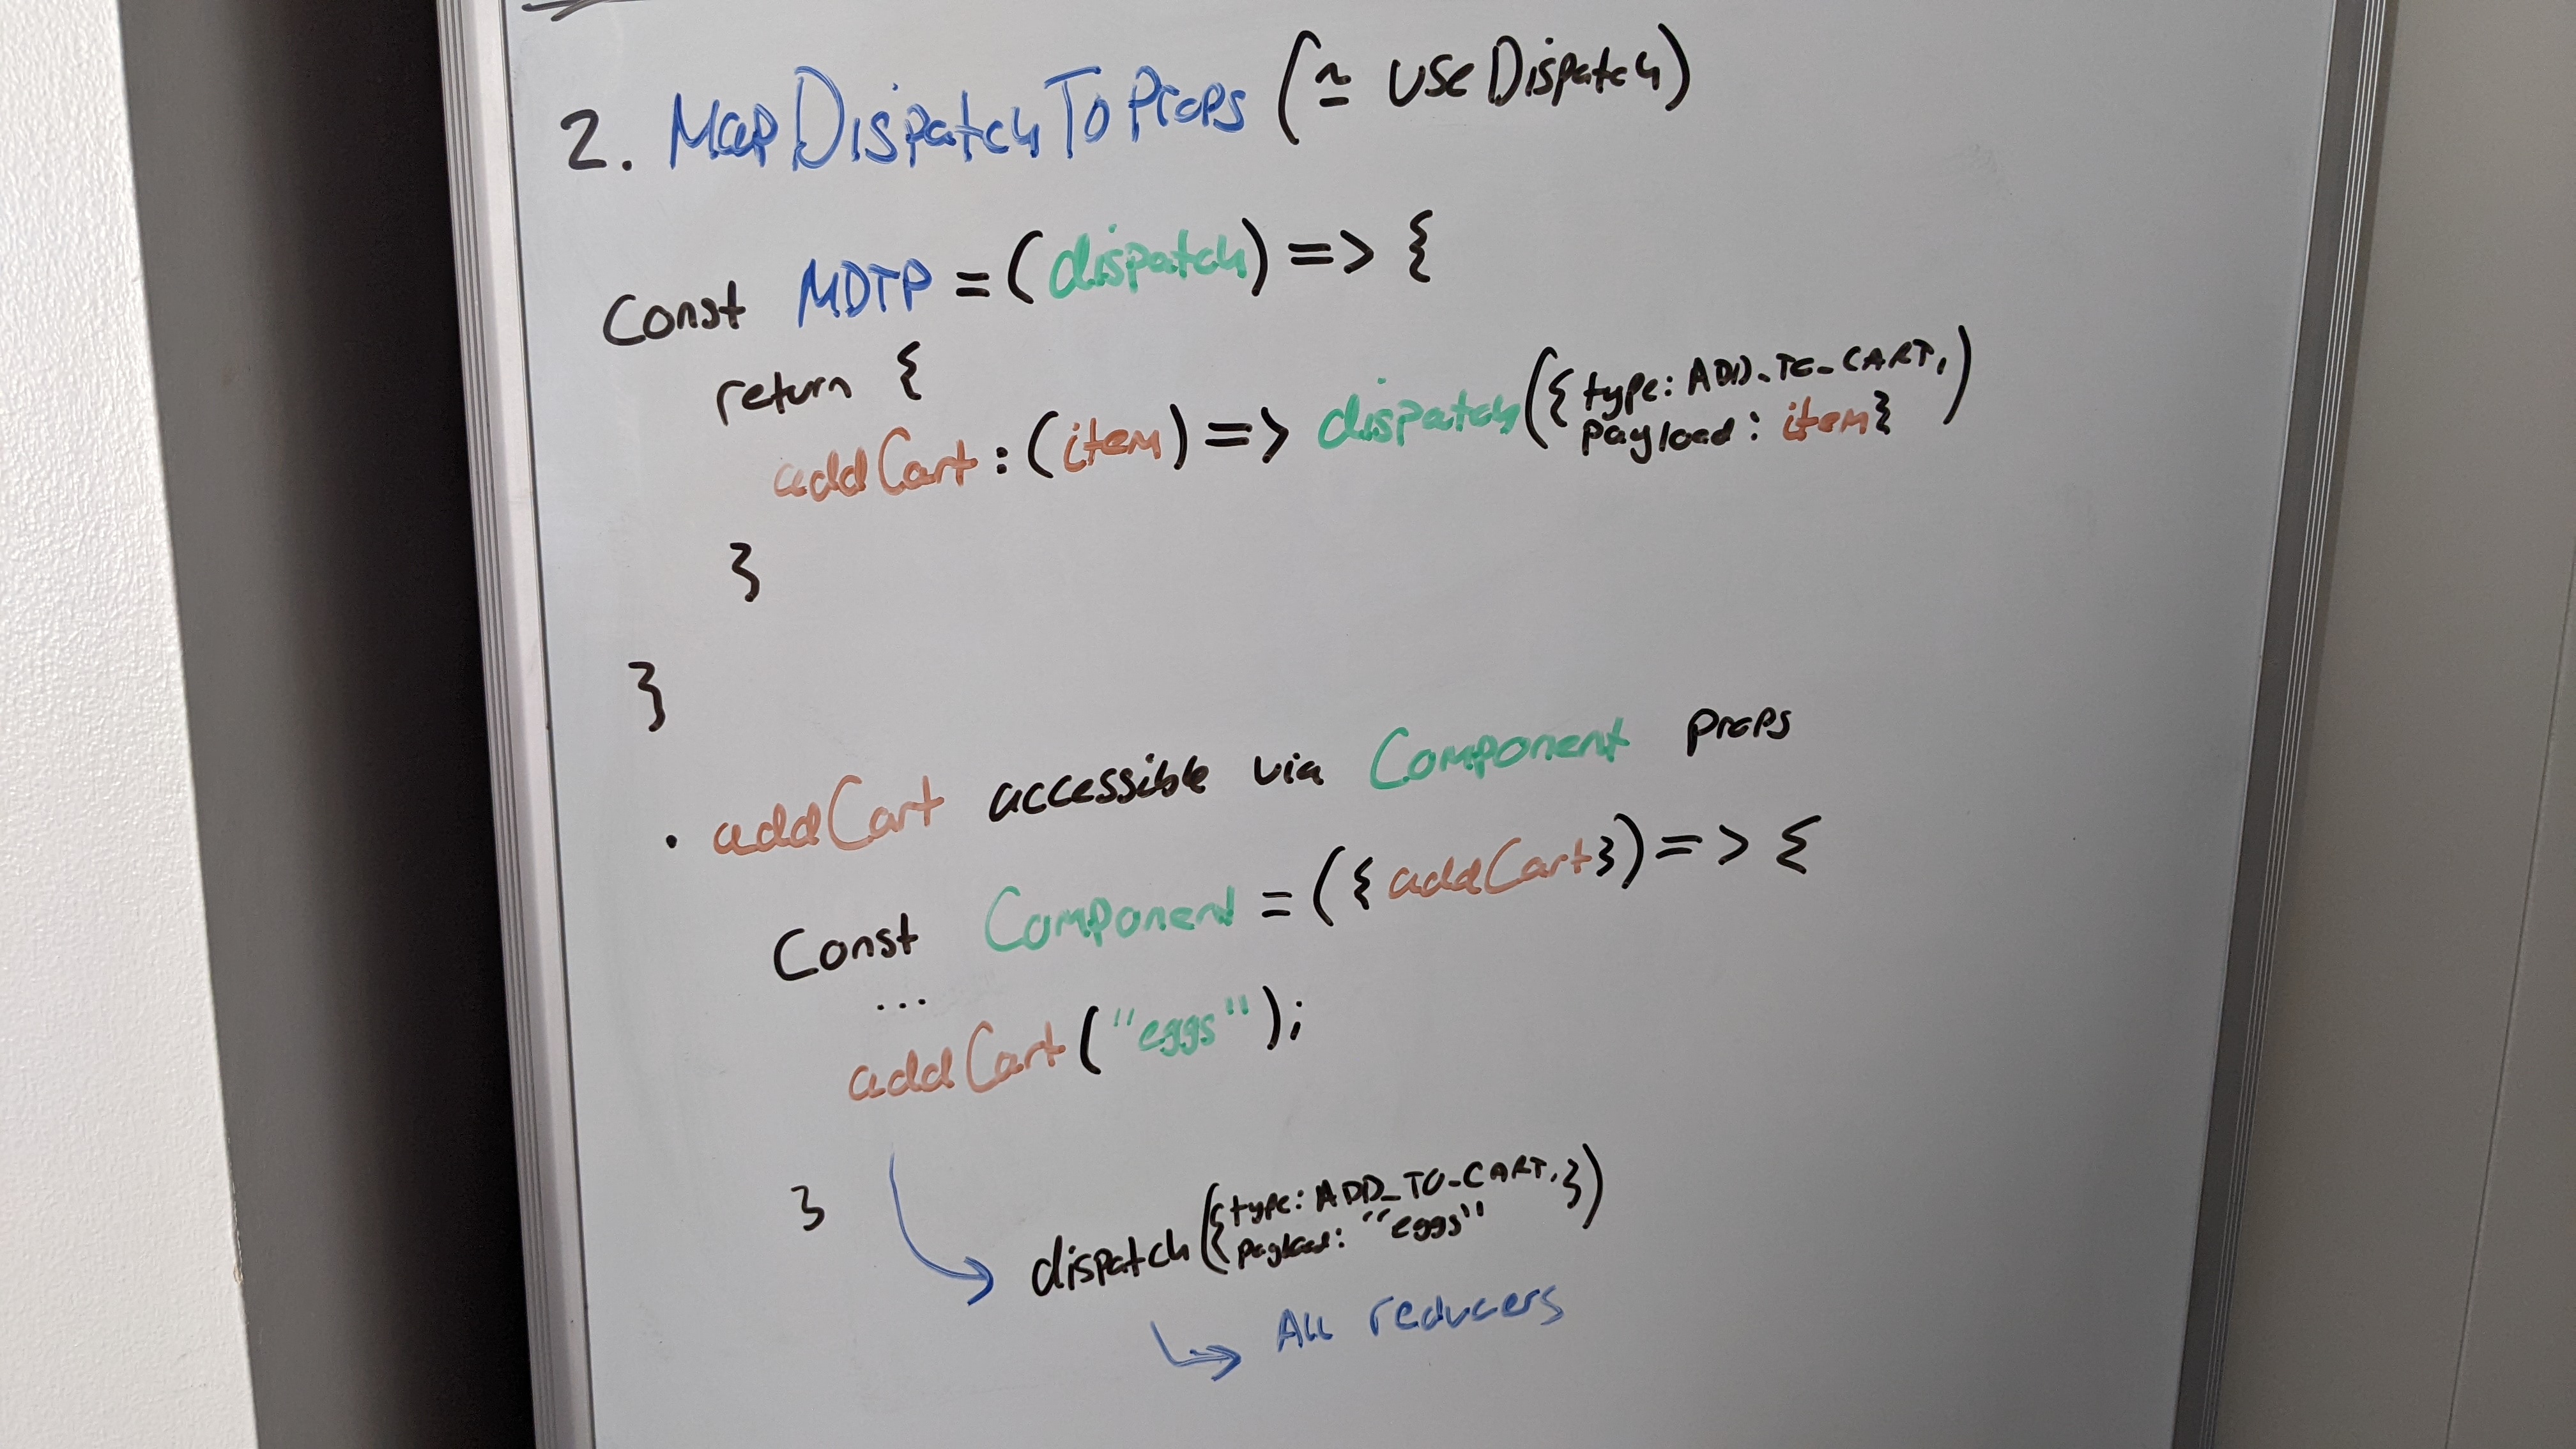 2. MapDispatchToProps (≃ useDispatch)
Const MDTP = (dispatch) => {
return {
addCart: (item) => dispatch({type: ADD_TO_CART,
payload: item})
}
}
• addCart accessible via Component props
Const Component = ({addCart}) => {
...
addCart("eggs");
}
dispatch({type: ADD_TO_CART, })
payload: "eggs"
All reducers